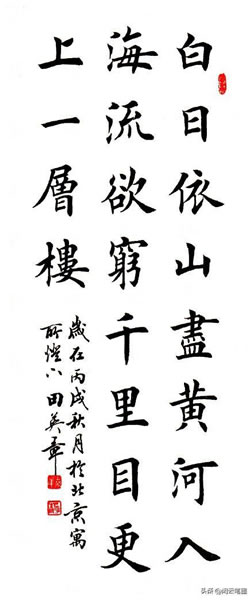 白日依山盡黄河入
海流欲窮千里目更
上一層樓
歲在丙戌秋月於北京寓
所燈下田英章
头条